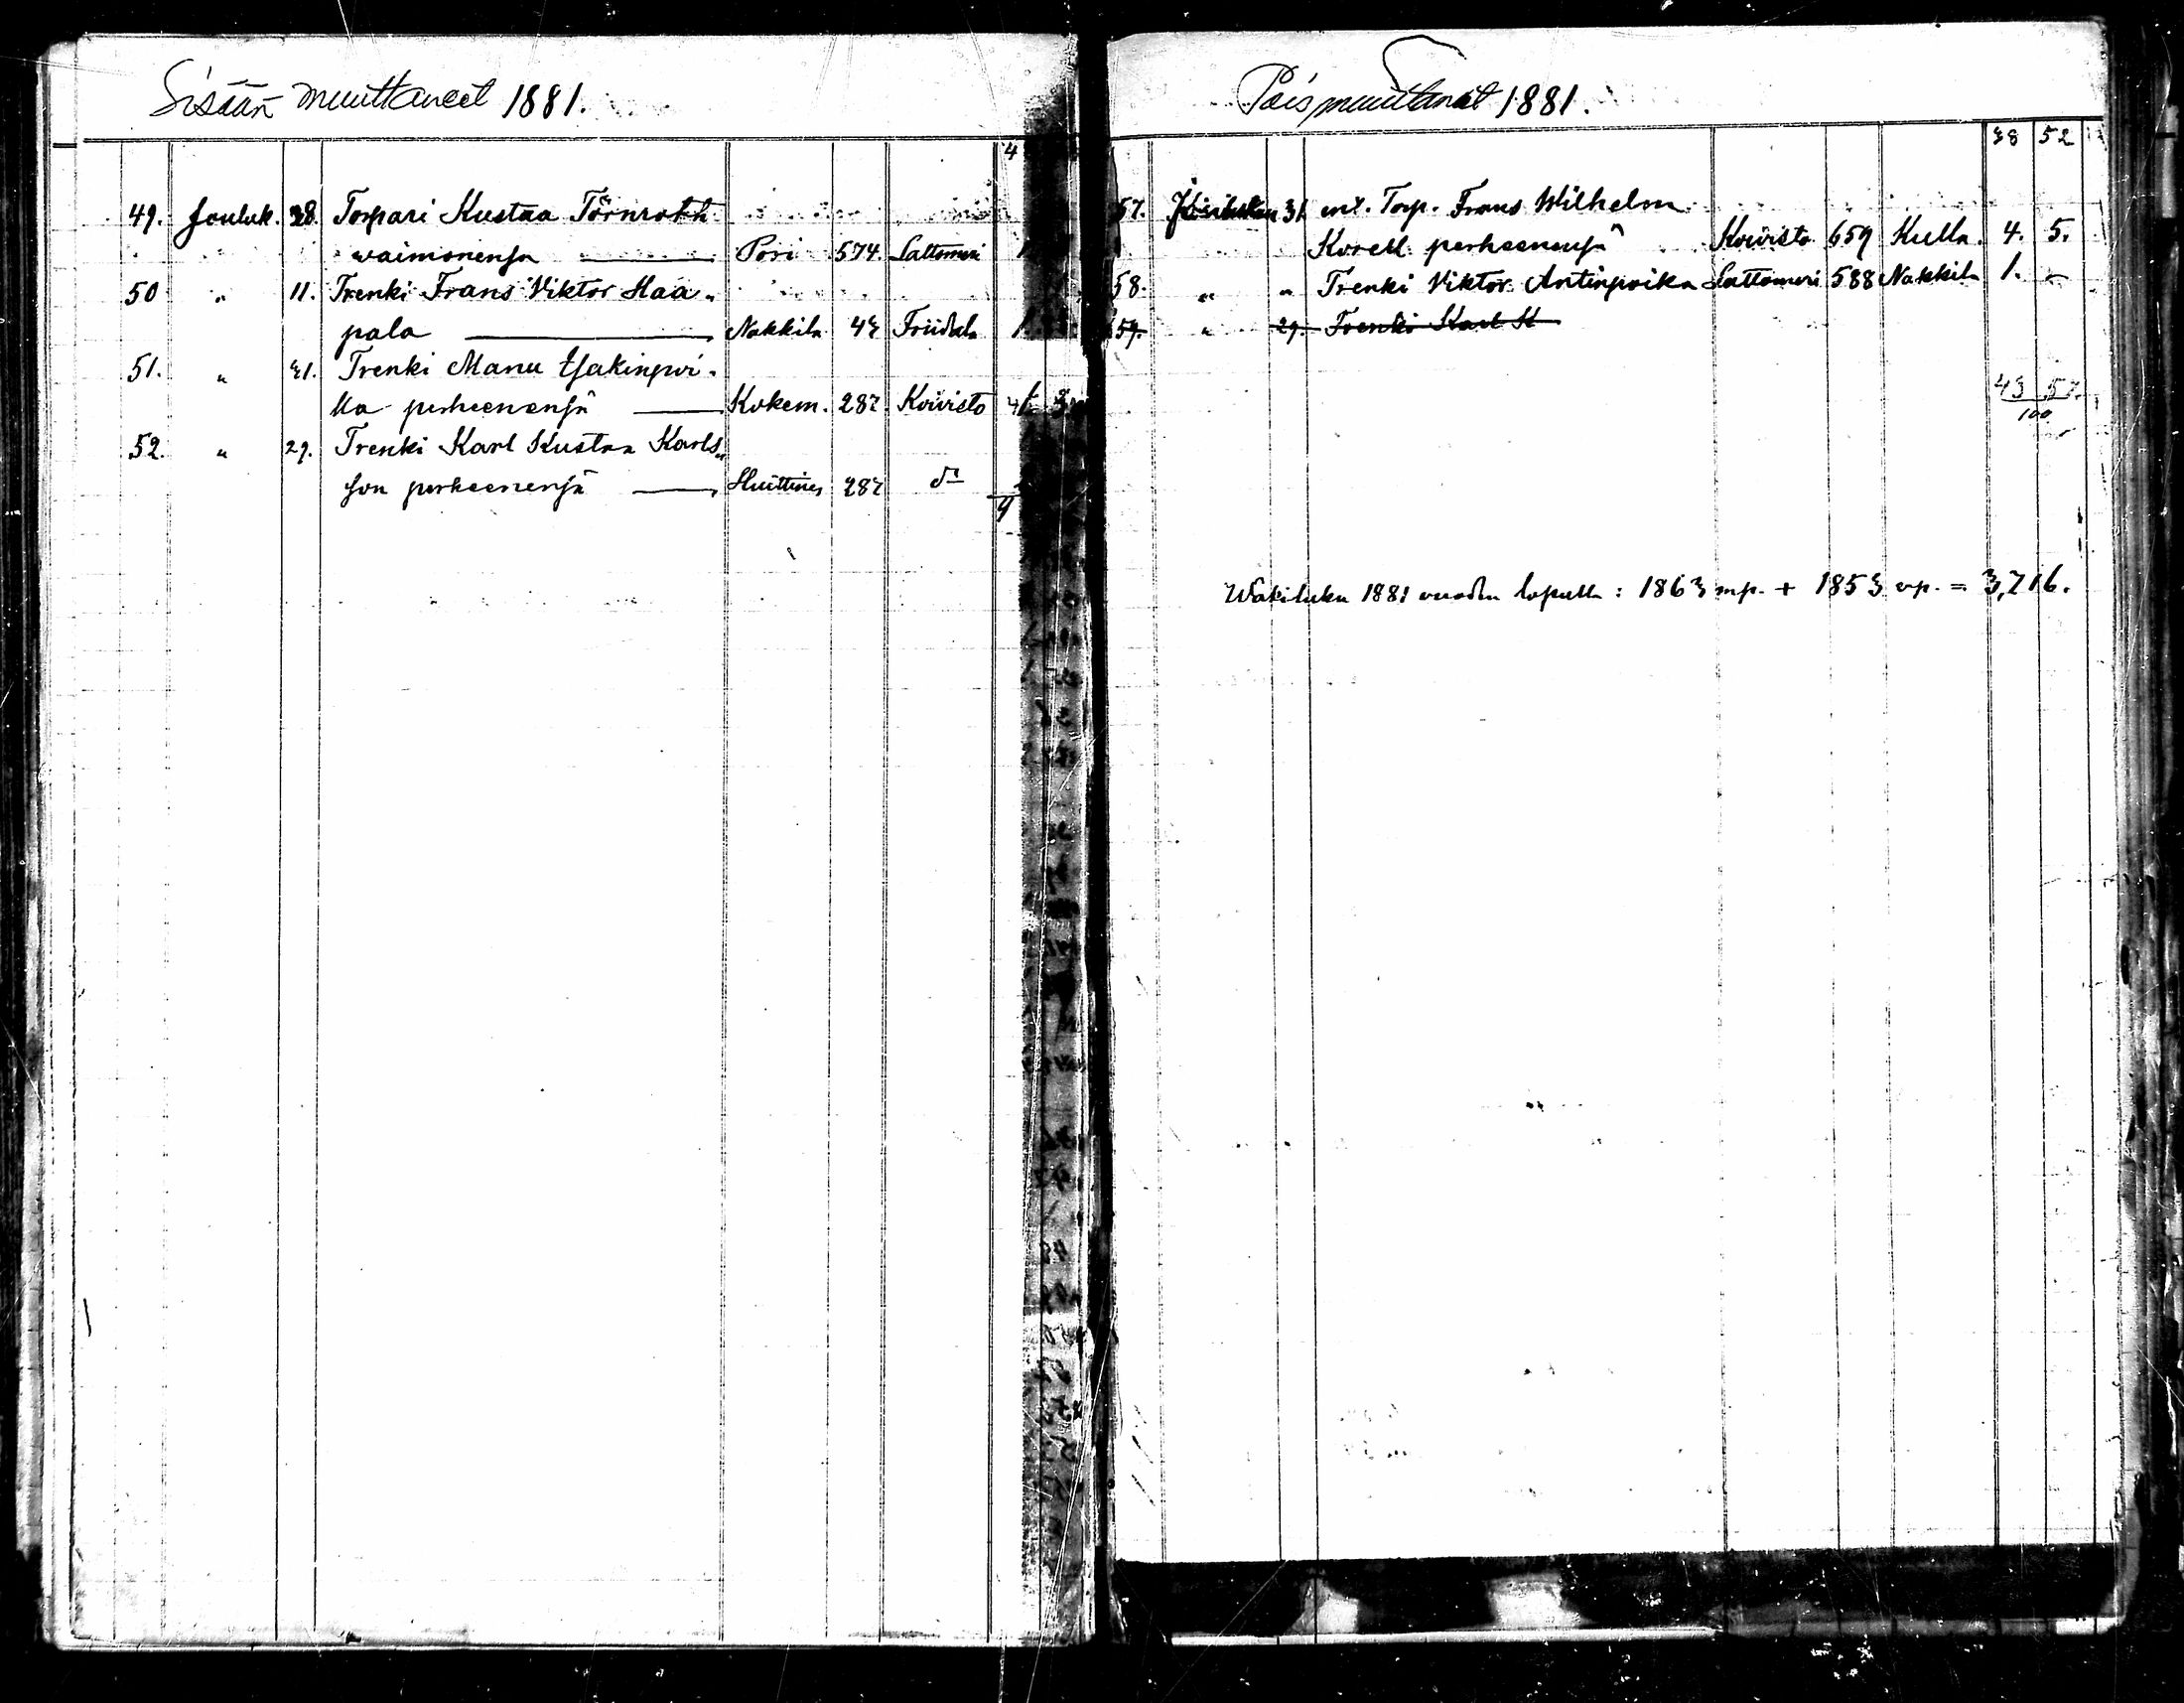 Sisään muuttaneet 1881.
4
49. Jouluk. 28. Torpari Kustaa Törnroth
waimonensa Pori 574 Lattomeri 1
50 " 11. Trenki Frans Viktor Haa„
pala Nakkila 42 Friidala 1
51. " 21. Trenki Manu Esakinpoi„
ka perheenensä Kokem. 282 Koivisto
52. " 29. Trenki Karl Kustaa Karls„
son perheenensä Huittinen 282 d:o
Poismuuttanet 1881.
38 52
57. 31 ent. Torp. Frans Wilhelm
Korell perheenensä Koivisto 659 Kulla 4. 5.
58. " " Trenki Viktor Antinpoika Lattomeri 588 Nakkila 1. –
59. " 29. Trenki Karl K
43 57.
100
Wäkiluku 1881 vuoden lopulla : 1863 mp. + 1853 vp. = 3,716.